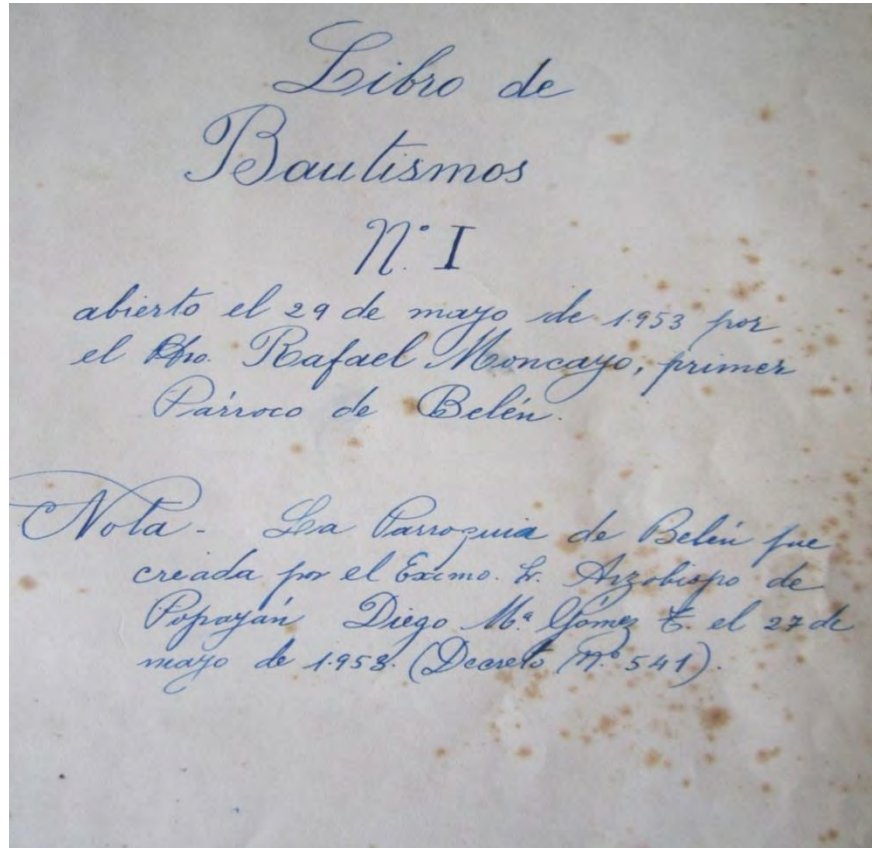 Libro de
Bautismos
N.° I
abierto el 29 de mayo de 1.953 por
el Pbro. Rafael Moncayo, primer
Párroco de Belén.
Nota - La Parroquia de Belén fue
creada por el Excmo. Sr. Arzobispo de
Popayán Diego Mª Gómez T. el 27 de
mayo de 1.958. (Decreto N.° 541).